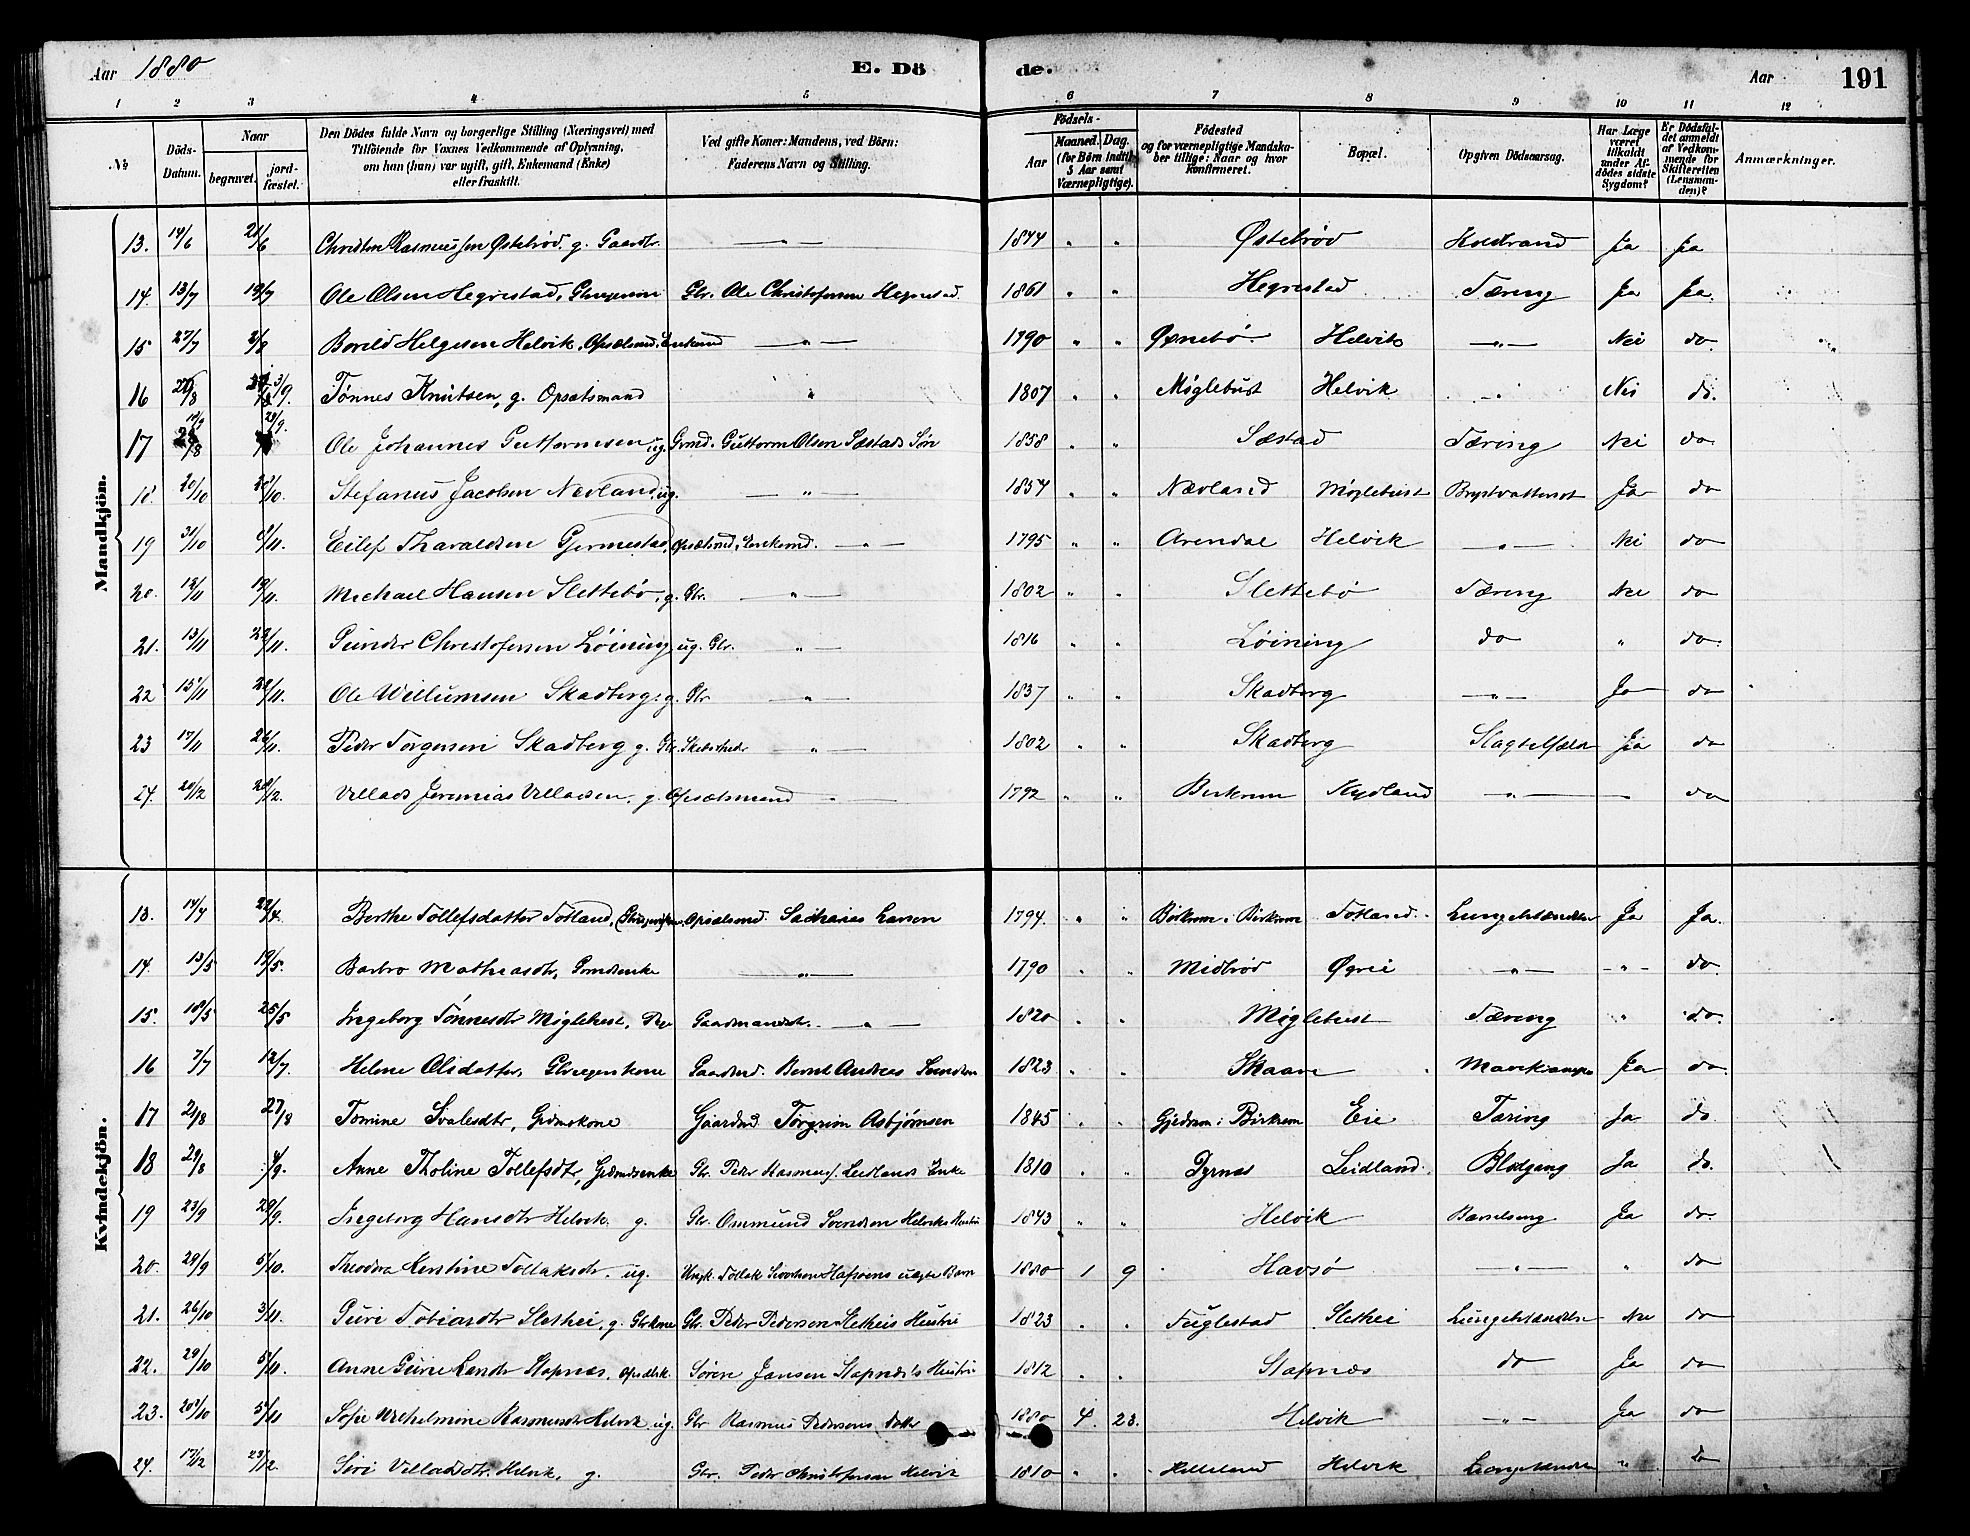 Aar 1880 E. Döde. Aar 191
1 2 3 4 5 6 7 8 9 10 11 12
№ Döds-Datum. Naar begravet. jordfæstet. Den Dödes fulde Navn og borgerlige Stilling (Næringsvei) med Tilföiende for Voxnes Vedkommende af Oplysning, om han (hun) var ugift, gift, Enkemand (Enke) eller fraskilt. Ved gifte Koner: Mandens, ved Börn: Faderens Navn og Stilling. Födsels- Aar Maaned. Dag. (for Börn indtil 5 Aar samt Værnepligtige). Födested og for værnepligtige Mandskaber tillige: Naar og hvor konfirmeret. Bopæl. Opgiven Dödsaarsag. Har Læge været tilkaldt under Afdödes sidste Sygdom? Er Dödsfaldet anmeldt af Vedkommende for Skifteretten (Lensmanden)? Anmærkninger.
Mandkjön.
13. 14/6 21/6 Christen Rasmussen Østebrød, g. Gaardbr. — " — 1844 " " Østebrød Koldbrand Ja Ja
14. 13/7 19/7 Ole Olsen Hegrestad, Gbr. Ole Christofersen Hegrestad 1861 " " Hegrestad Tæring Ja Ja.
15 27/7 2/8 Borild Helgesen Helvik, Opsætsmd. Enkemd — " — 1790 " " Øxnebø Helvik — " — Nei do.
16 /8 3/9. Tønnes Knutsen, g. Opsætsmand " 1807 " " Møglebust Helvik " Nei do.
17 Ole Johannes Guttormsen ug. Grmd. Guttorm Olsen Sæstads Søn 1858 " " Sæstad Tæring Nei do
18. 20/10 /10. Stefanus Jacobsen Nevland, ug. — " — 1854 " " Nævland Møglebust Ja do
19 31/10 6/11. Eilef Tharaldsen Gjermestad, Opsætsmd, Enkemd. — " — 1795 " " Arendal Helvik — " — Nei do
20. 12/11 19/11. Michael Hansen Slettebø, g. Gbr. — " — 1802 " " Slettebø Tæring Nei do
21. 13/11 22/11. Gunder Christofersen Løining ug. Gbr. " — 1816 " " Løining do " do.
22 15/11 22/11. Ole Willumsen Skadberg, g. Gbr — " — 1837 " " Skadberg — " — Ja do
23 17/11 26/11. Peder Torgersen Skadberg g. Gbr. — " — 1802 " " Skadberg Slagtilfælde Ja do
24. 20/12 28/12. Villads Jeremias Villadsen, g. Opsætsmand — " — 1792 " " Birkrem Hydland — " — — do
Kvindekjön.
13. 14/4 22/4. Berthe Tollefsdatter Totland, Opsætsmd. Sacharias Larsen 1794. " " Birkrem i Birkrem Totland. Lungebetændelse Ja Ja.
14. 13/5 19/5. Barbro Mathiasdtr, Grmdsenke — " — 1790 " " Midbrød Øgrei — " — — " — do.
15. 18/5 25/5 Ingeborg Tønnesdtr Møglebust, Gaardmandsk. — " — 1820 " " Møglebust Tæring " do.
16 7/7 12/7. Helene Olsdatter, Gaardmd. Bernt Andreas Svendsen 1823 " " Skaare Mavekrampe Ja do.
17 21/8 27/8 Tomine Svalesdtr, Grdmskone Gaardmd Torgrim Asbjørnsen 1845 " " Gjedrem i Birkrem Eie Tæring Ja do
18 29/8 4/9. Anne Tholine Tollefsdtr, Grdmdsenke Gbr. Peder Rasmuss. Leidlands Enke 1810 " " Dyrnæs Leidland. Blodgang Ja do.
19 23/9 29/9. Ingeborg Hansdtr Helvik g. Gbr. Ommund Svendsen Helviks Hustru 1843 " " Helvik Barselseng Ja do.
20. 29/9 5/10. Theodora Kirstine Tollaksdtr. ug. Ungk. Tollak Sivertsen Hafsøens uægte Barn 1880 1 9 Havsø — " — " do
21. 26/10 3/11. Guri Tobiasdtr Slethei, g. Gbrkone Gbr. Peder Pedersen Sletheis Hustru 1823 " " Fuglestad Slethei Lungebetændelse Nei do
22. 29/10 5/11. Anne Gurine Larsdtr Stapnæs, Søren Jansen Stapnæs's Hustru 1812 " " Stapnæs do Ja do
23. 20/10 5/11 Sofie Wilhelmine Rasmusdtr Helvik ug. Gbr Rasmus Pedersens Datter 1880 4. 23. Helvik — " — Ja do
24. 17/12 23/12. Siri Villadsdtr. Helvik, g. Gbr. Peder Christofersen Helvik 1810 " " Helleland Helvik Lungebetændelse " do